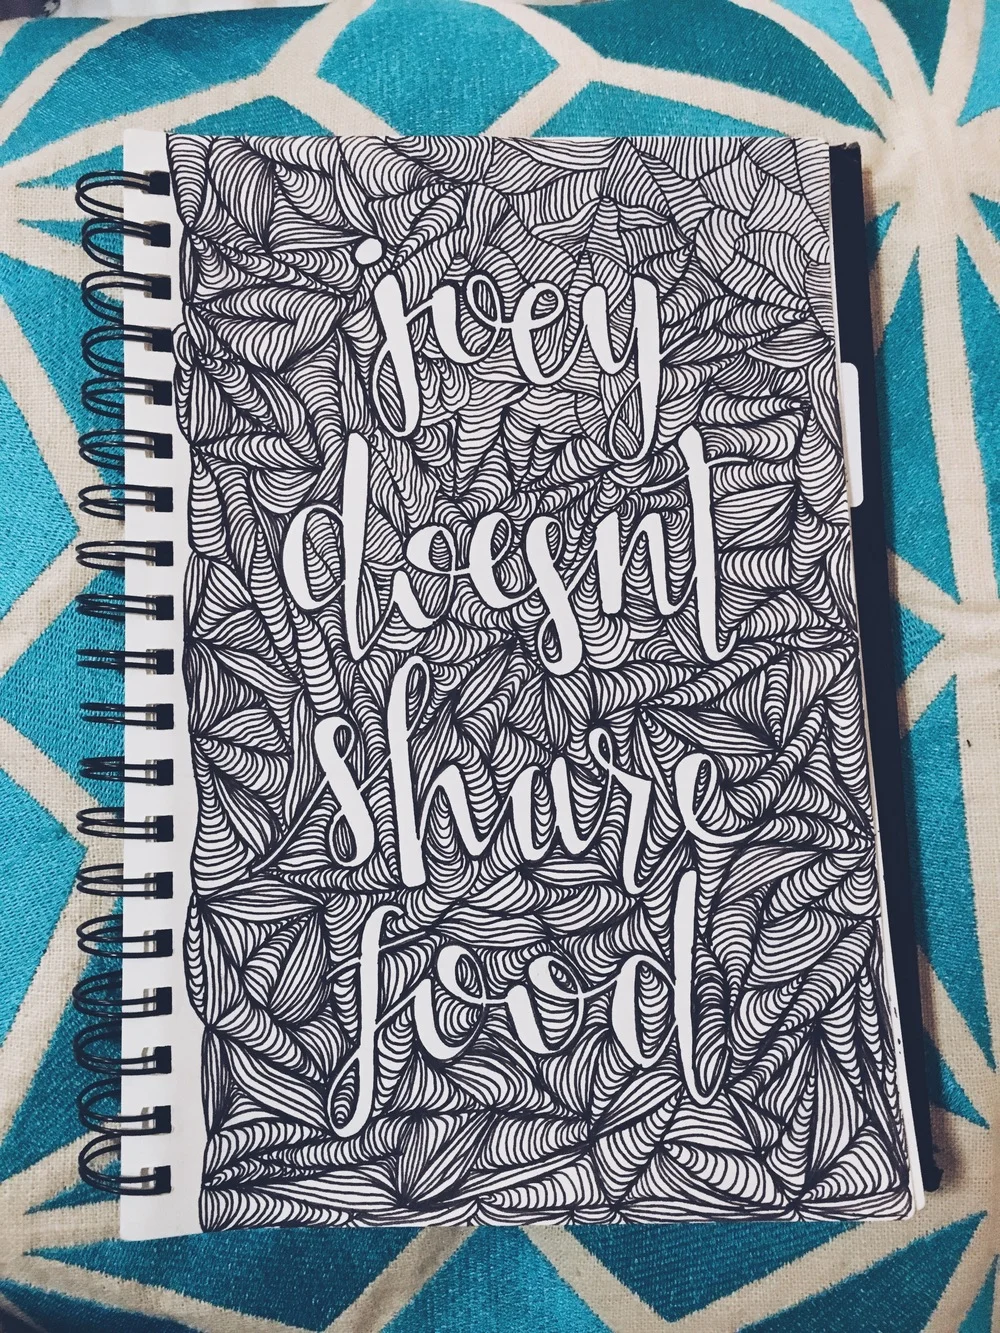 joey
doesnt
share
food